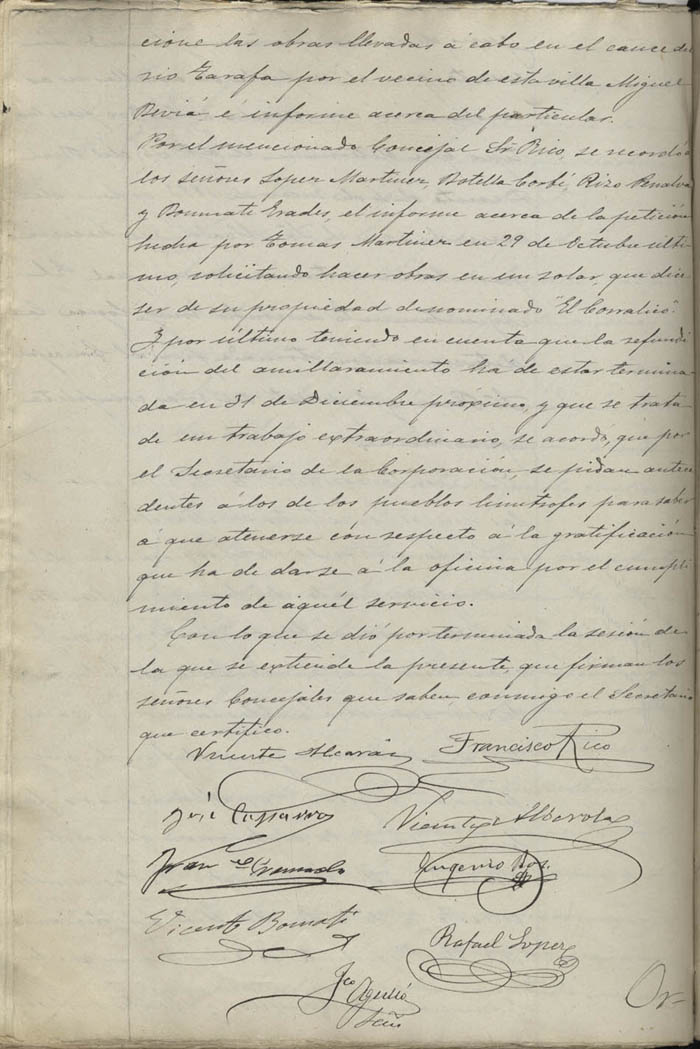 cione las obras llevadas á cabo en el cauce del
rio Tarafa por el vecino de esta villa Miguel
Beviá é informe acerca del particular.
Por el mencionado Concejal Sr. Rico, se recordó á
los señores Lopez Martinez, Botella Corbí, Rizo Penalva
y Bonmati Erades, el informe acerca de la petición
hecha por Tomas Martinez en 29 de Octubre últi
mo, solicitando hacer obras en un solar, que dice
ser de su propiedad denominado "El Corralico".
Y por último teniendo en cuenta que la refundi
ción del amillaramiento ha de estar termina
da en 31 de Diciembre próximo, y que se trata
de un trabajo extraordinario, se acordó, que por
el Secretario de la Corporación, se pidan antece
dentes á los de los pueblos limitrofes para saber
á que atenerse con respecto á la gratificación
que ha de darse á la oficina por el cumpli
miento de aquél servicio.
Con lo que se dió por terminada la sesión de
la que se extiende la presente, que firman los
señores Concejales que saben, conmigo el Secretario
que certifico.
Vicente Alcaráz Francisco Rico
José Vicente Alberola
Eugenio
Vicente Bonmatí
Rafael Lopez
Fco Agulló
Or-